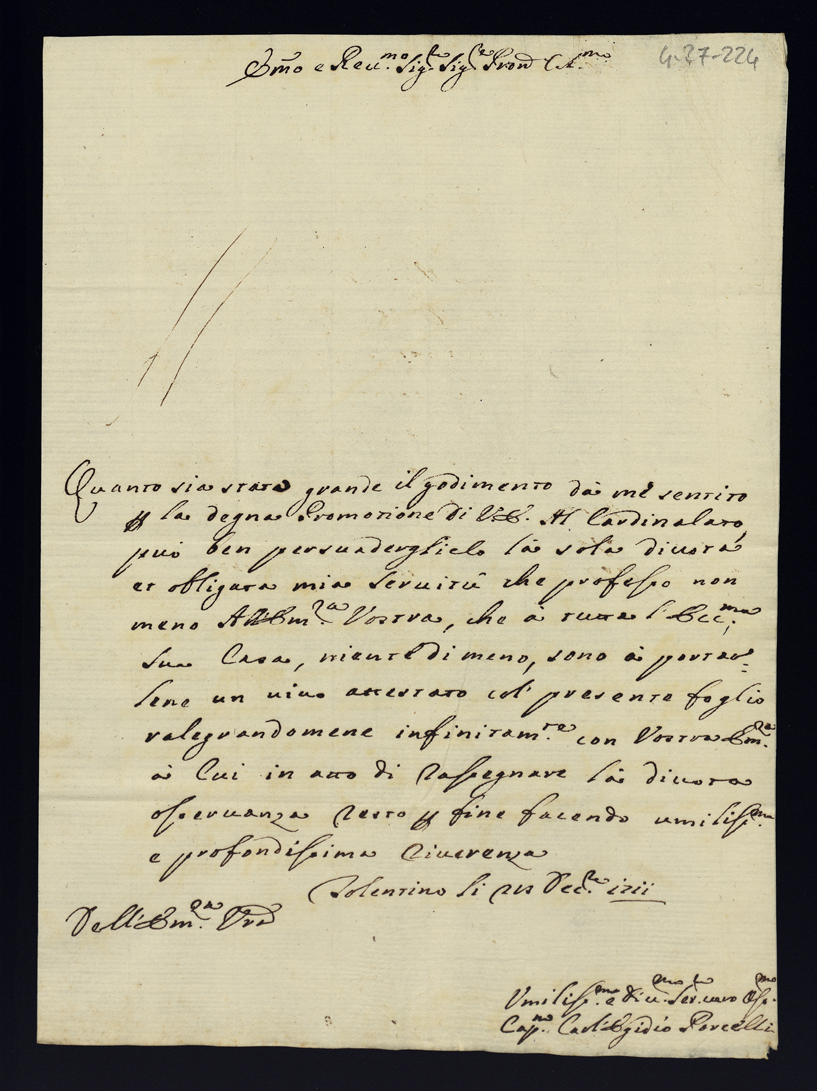 Emo e Reu.mo Sig.r Sig.r Pron C.mo
4-37-224
Quanto sia stato grande il godimento dà mè sentito
p la degna Promotione di V.E. Al Cardinalato,
può ben persuaderglielo là sola diuota
et obligata mia seruitù che professo non
meno All'Em.za Vostra, che à tutta l'Ecc.ma
sua Casa, niente di meno, sono à portar=
lene un viuo attestato col presente foglio
ralegrandomene infinitam.te con Vostra Em.za
à Cui in atto di rassegnare là diuota
osseruanza resto p fine facendo umiliss.ma
e profondissima riuerenza
Tolentino li Dec.re 1711
Dell'Em.za Vra
Vmiliss.mo e diu.mo Ser.uitro oss.mo
Cap.no Carl'Egidio Porcelli